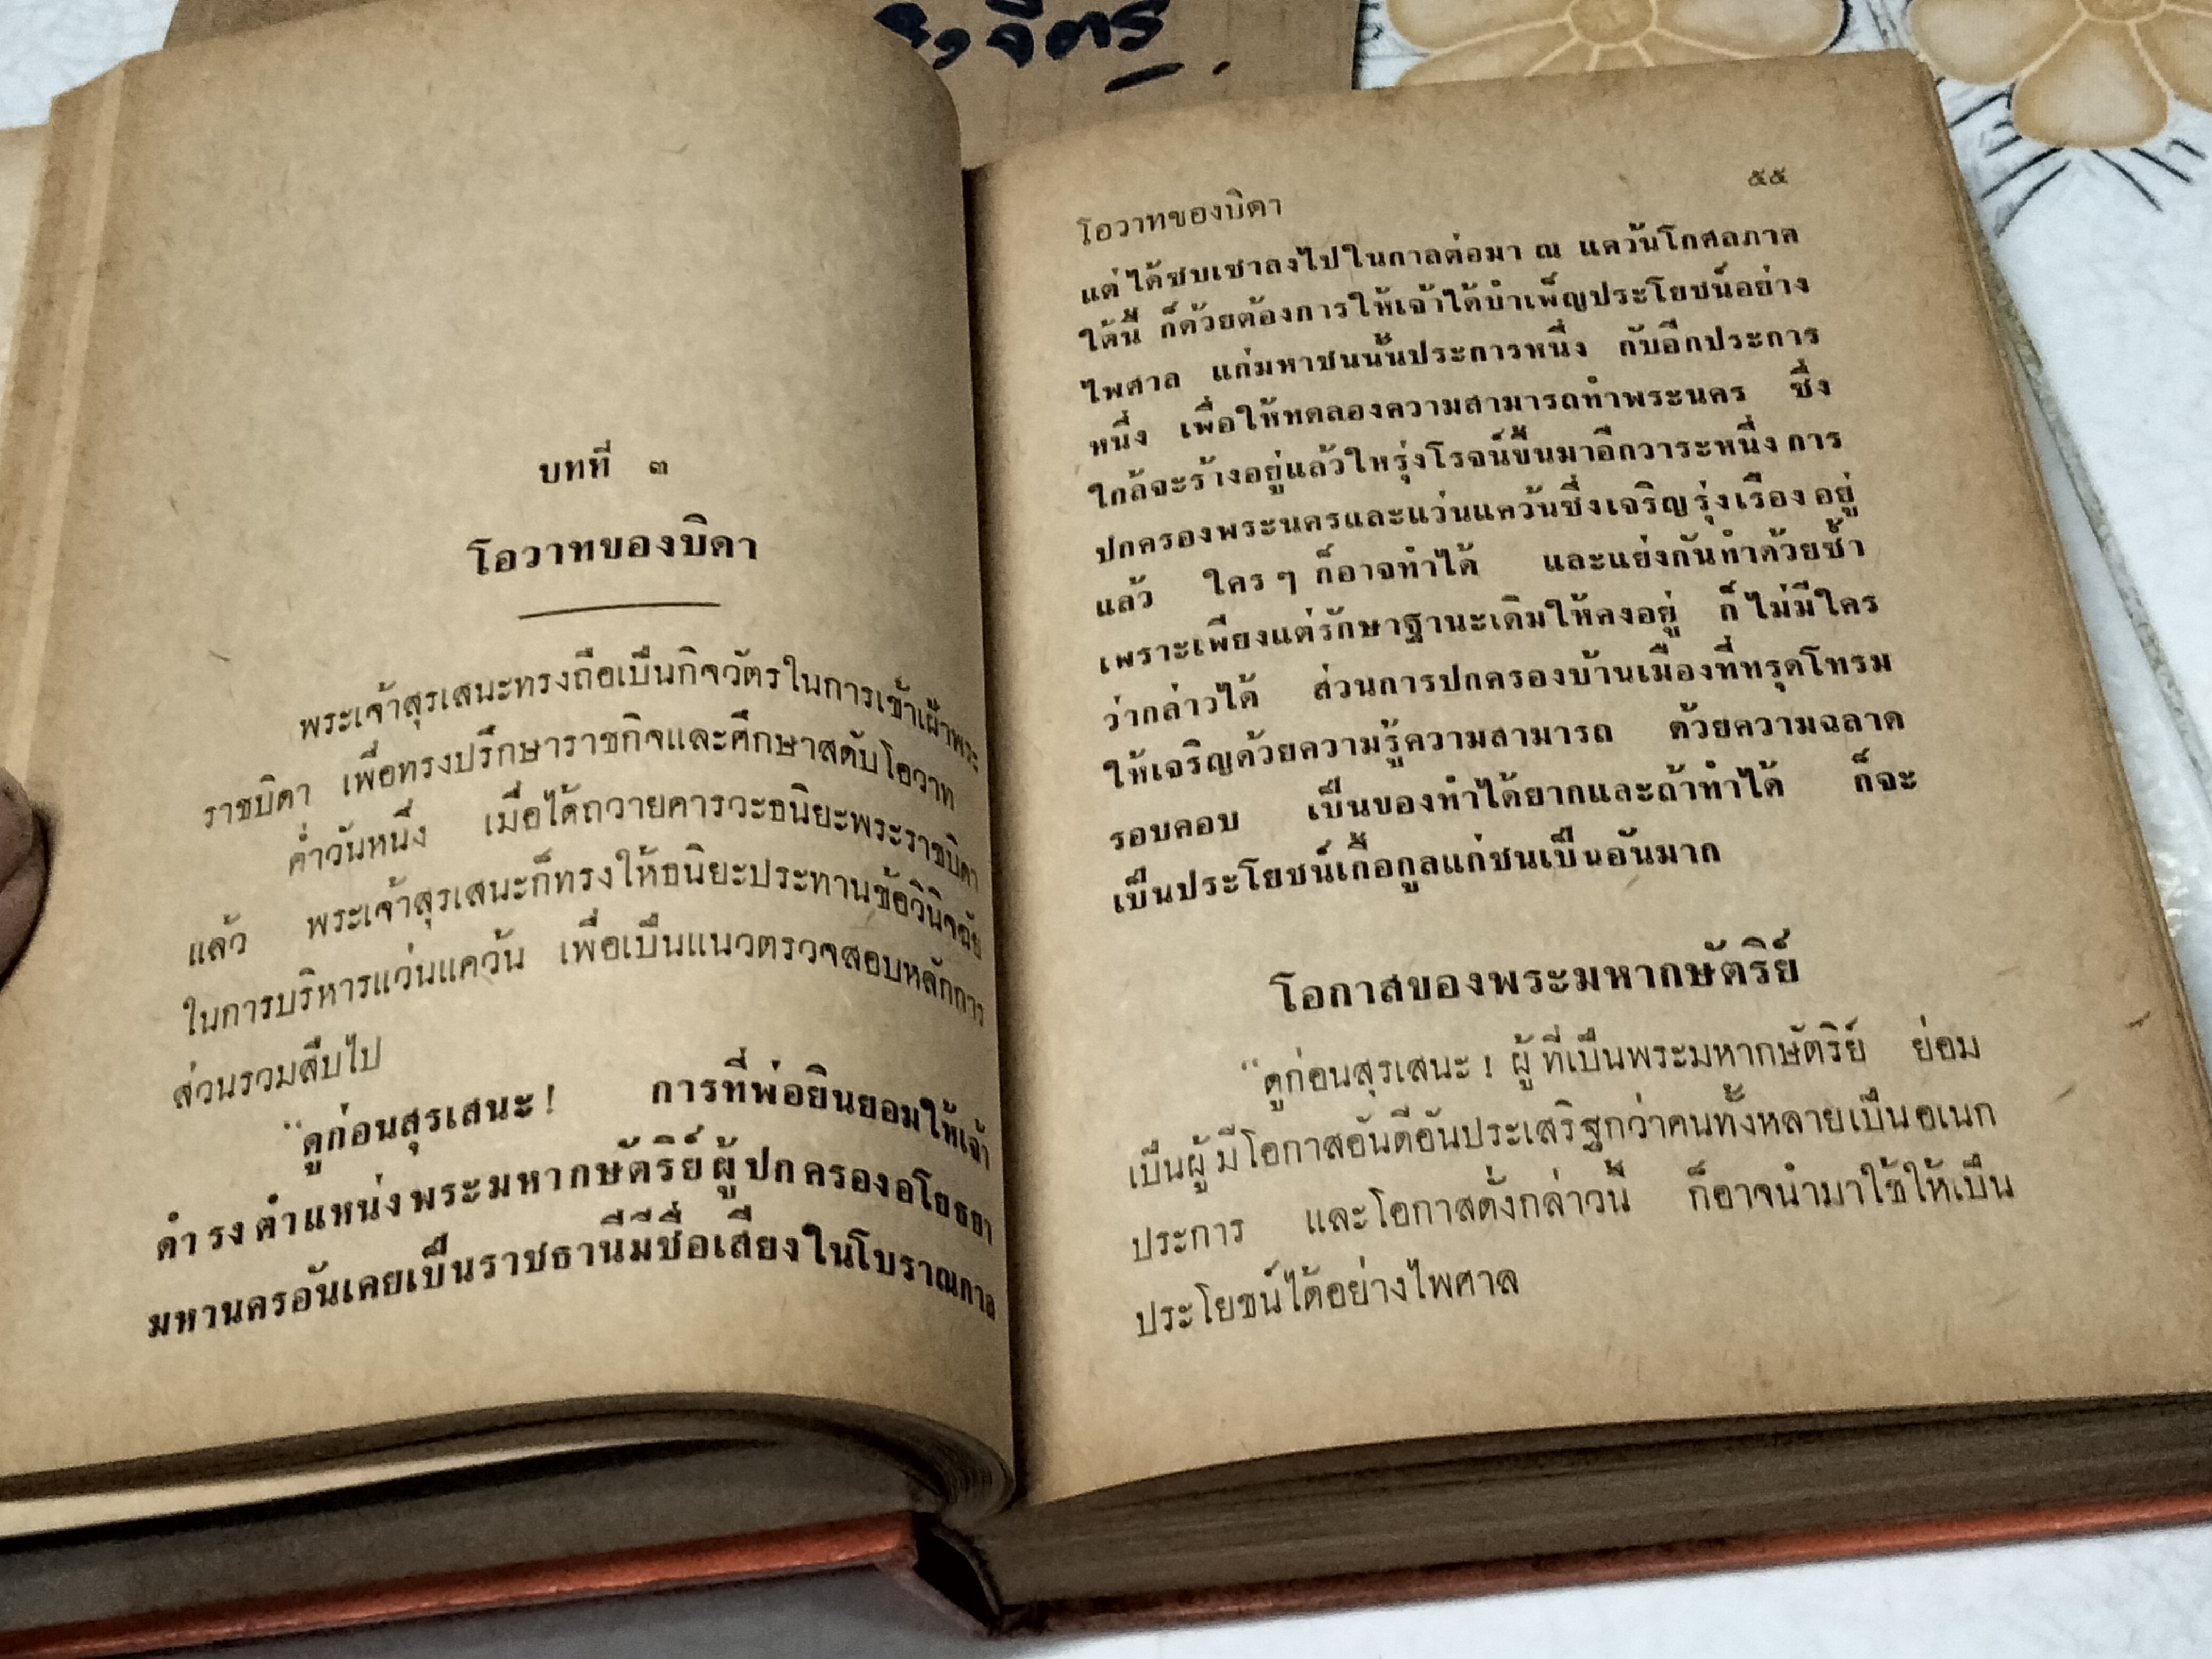 จิตร
บทที่ ๓
โอวาทของบิดา
พระเจ้าสุรเสนะทรงถือเป็นกิจวัตรในการเข้าเฝ้าพระ
ราชบิดา เพื่อทรงปรึกษาราชกิจและศึกษาสดับโอวาท
ค่ำวันหนึ่ง เมื่อได้ถวายคารวะธนิยะพระราชบิดา
แล้ว พระเจ้าสุรเสนะก็ทรงให้ธนิยะประทานข้อวินิจฉัย
ในการบริหารแว่นแคว้น เพื่อเป็นแนวตรวจสอบหลักการ
ส่วนรวมสืบไป
“ดูก่อนสุรเสนะ! การที่พ่อยินยอมให้เจ้า
ดำรงตำแหน่งพระมหากษัตริย์ผู้ปกครองอโยธยา
มหานครอันเคยเป็นราชธานีมีชื่อเสียงในโบราณกาล
โอวาทของบิดา ๕๕
แต่ได้ซบเซาลงไปในกาลต่อมา ณ แคว้นโกศลภาค
ใต้นี้ ก็ด้วยต้องการให้เจ้าได้บำเพ็ญประโยชน์อย่าง
ไพศาล แก่มหาชนนั้นประการหนึ่ง กับอีกประการ
หนึ่ง เพื่อให้ทดลองความสามารถทำพระนคร ซึ่ง
ใกล้จะร้างอยู่แล้วใหรุ่งโรจน์ขึ้นมาอีกวาระหนึ่ง การ
ปกครองพระนครและแว่นแคว้นซึ่งเจริญรุ่งเรืองอยู่
แล้ว ใครๆ ก็อาจทำได้ และแย่งกันทำด้วยซ้ำ
เพราะเพียงแต่รักษาฐานะเดิมให้คงอยู่ ก็ไม่มีใคร
ว่ากล่าวได้ ส่วนการปกครองบ้านเมืองที่ทรุดโทรม
ให้เจริญด้วยความรู้ความสามารถ ด้วยความฉลาด
รอบคอบ เป็นของทำได้ยากและถ้าทำได้ ก็จะ
เป็นประโยชน์เกื้อกูลแก่ชนเป็นอันมาก
โอกาสของพระมหากษัตริย์
“ดูก่อนสุรเสนะ! ผู้ที่เป็นพระมหากษัตริย์ ย่อม
เป็นผู้มีโอกาสอันดีอันประเสริฐกว่าคนทั้งหลายเป็นอเนก
ประการ และโอกาสดั่งกล่าวนี้ ก็อาจนำมาใช้ให้เป็น
ประโยชน์ได้อย่างไพศาล